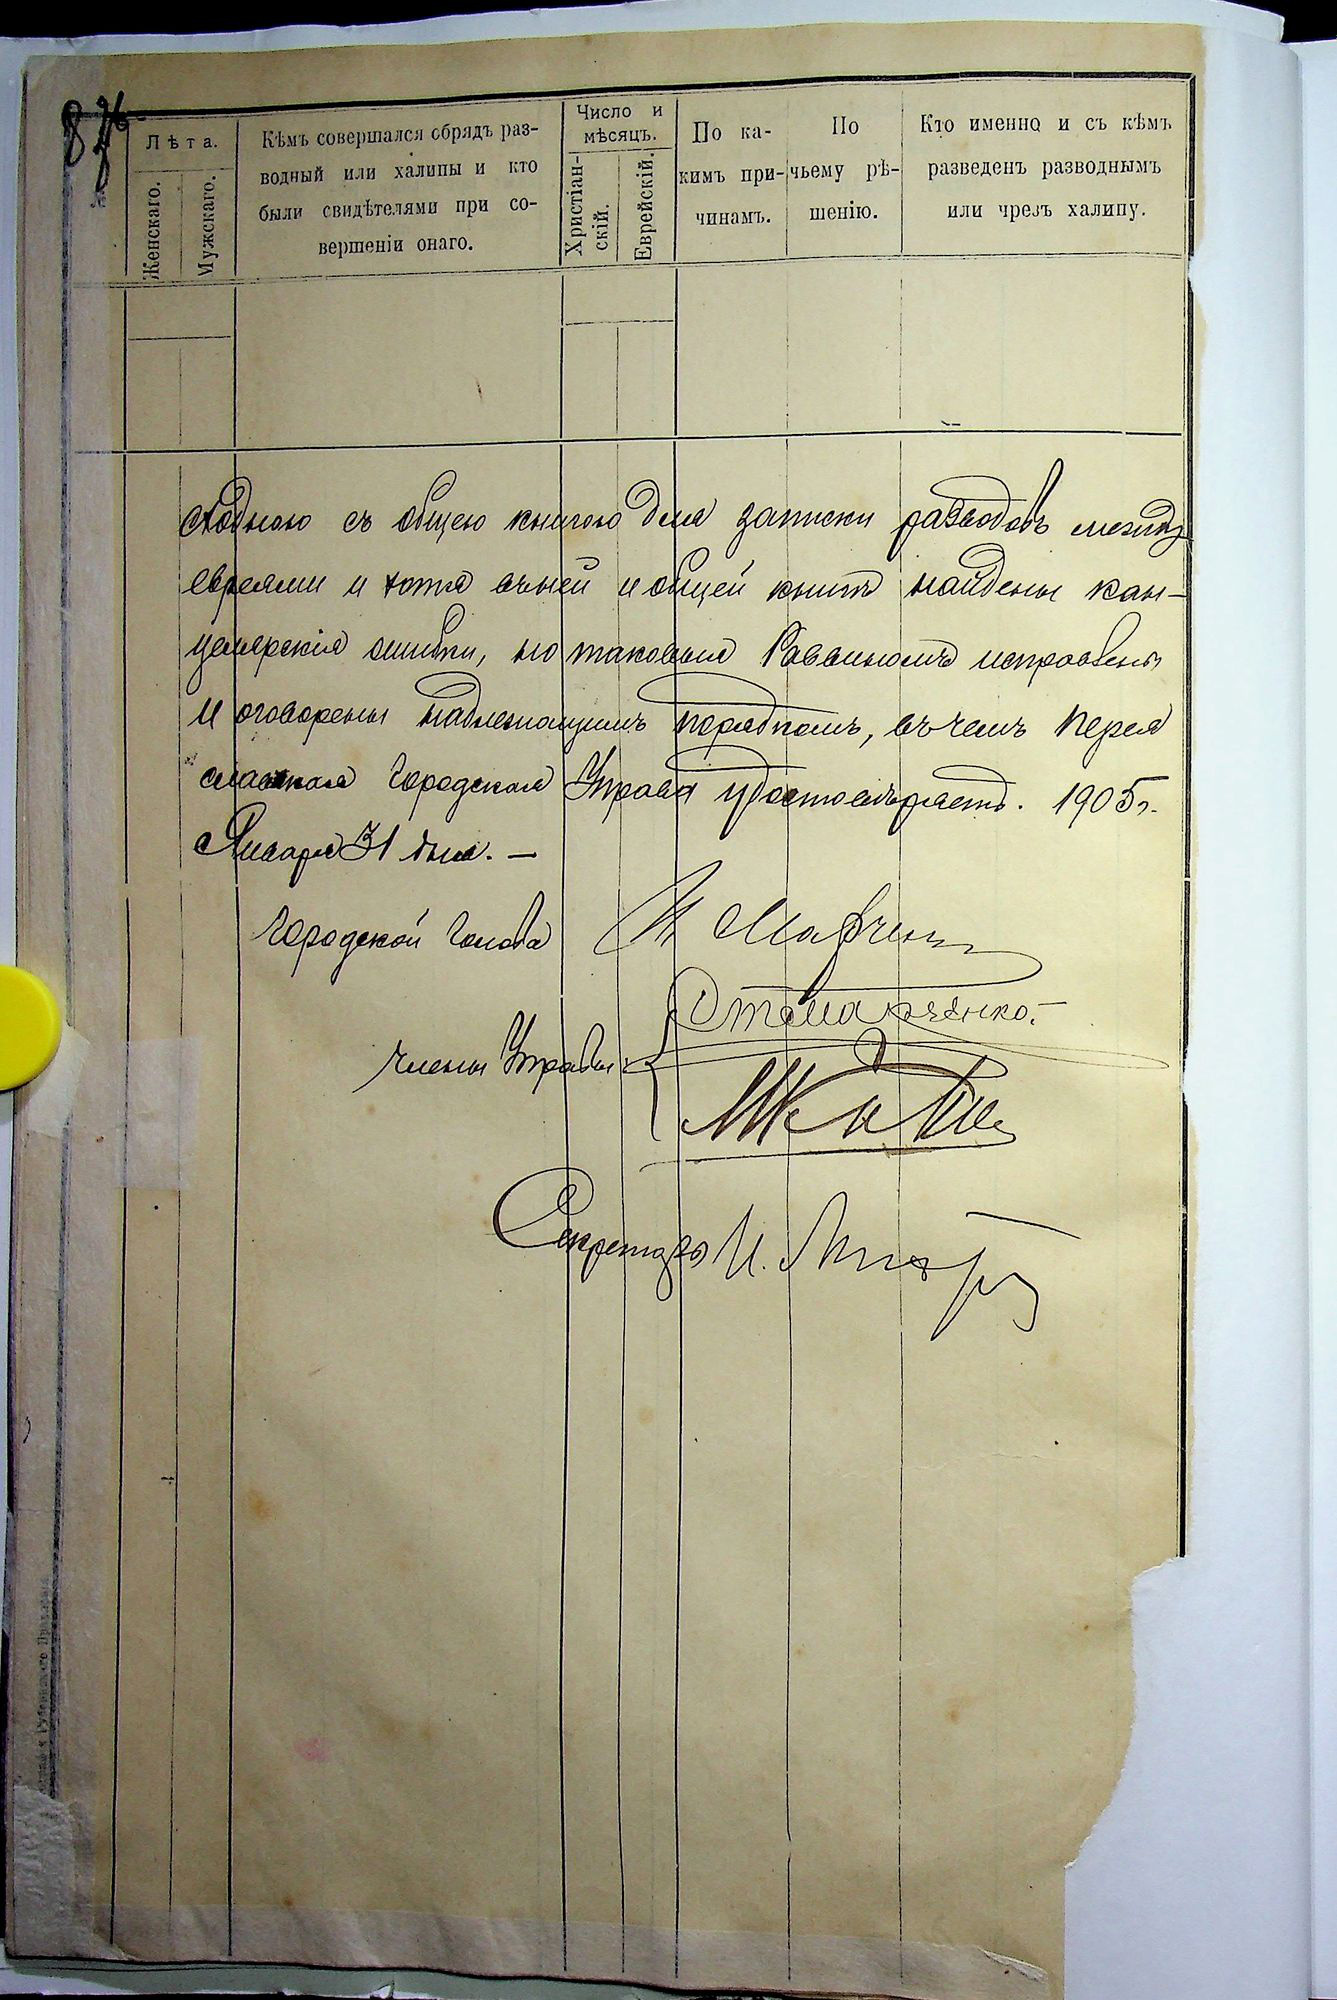 Лѣта.
Женскаго.
Мужскаго.
Кѣмъ совершался обрядъ раз-
водный или халипы и кто
были свидѣтелями при со-
вершеніи онаго.
Число и
мѣсяцъ.
Христіан-
скій.
Еврейскій.
По ка-
кимъ при-
чинамъ.
По
чьему рѣ-
шенію.
Кто именно и съ кѣмъ
разведенъ разводнымъ
или чрезъ халипу.
сходною съ общею книгою для записки разводовъ между
евреями и хотя въ ней и общей книгѣ найдены кан-
целярскія ошибки, но таковыя Раввиномъ исправлены
и оговорены надлежащимъ порядкомъ, въ чемъ Перея
славская Городская Управа удостовѣряетъ. 1905 г.
Января 31 дня. —
Городской Голова
Члены Управы
Секретарь И.